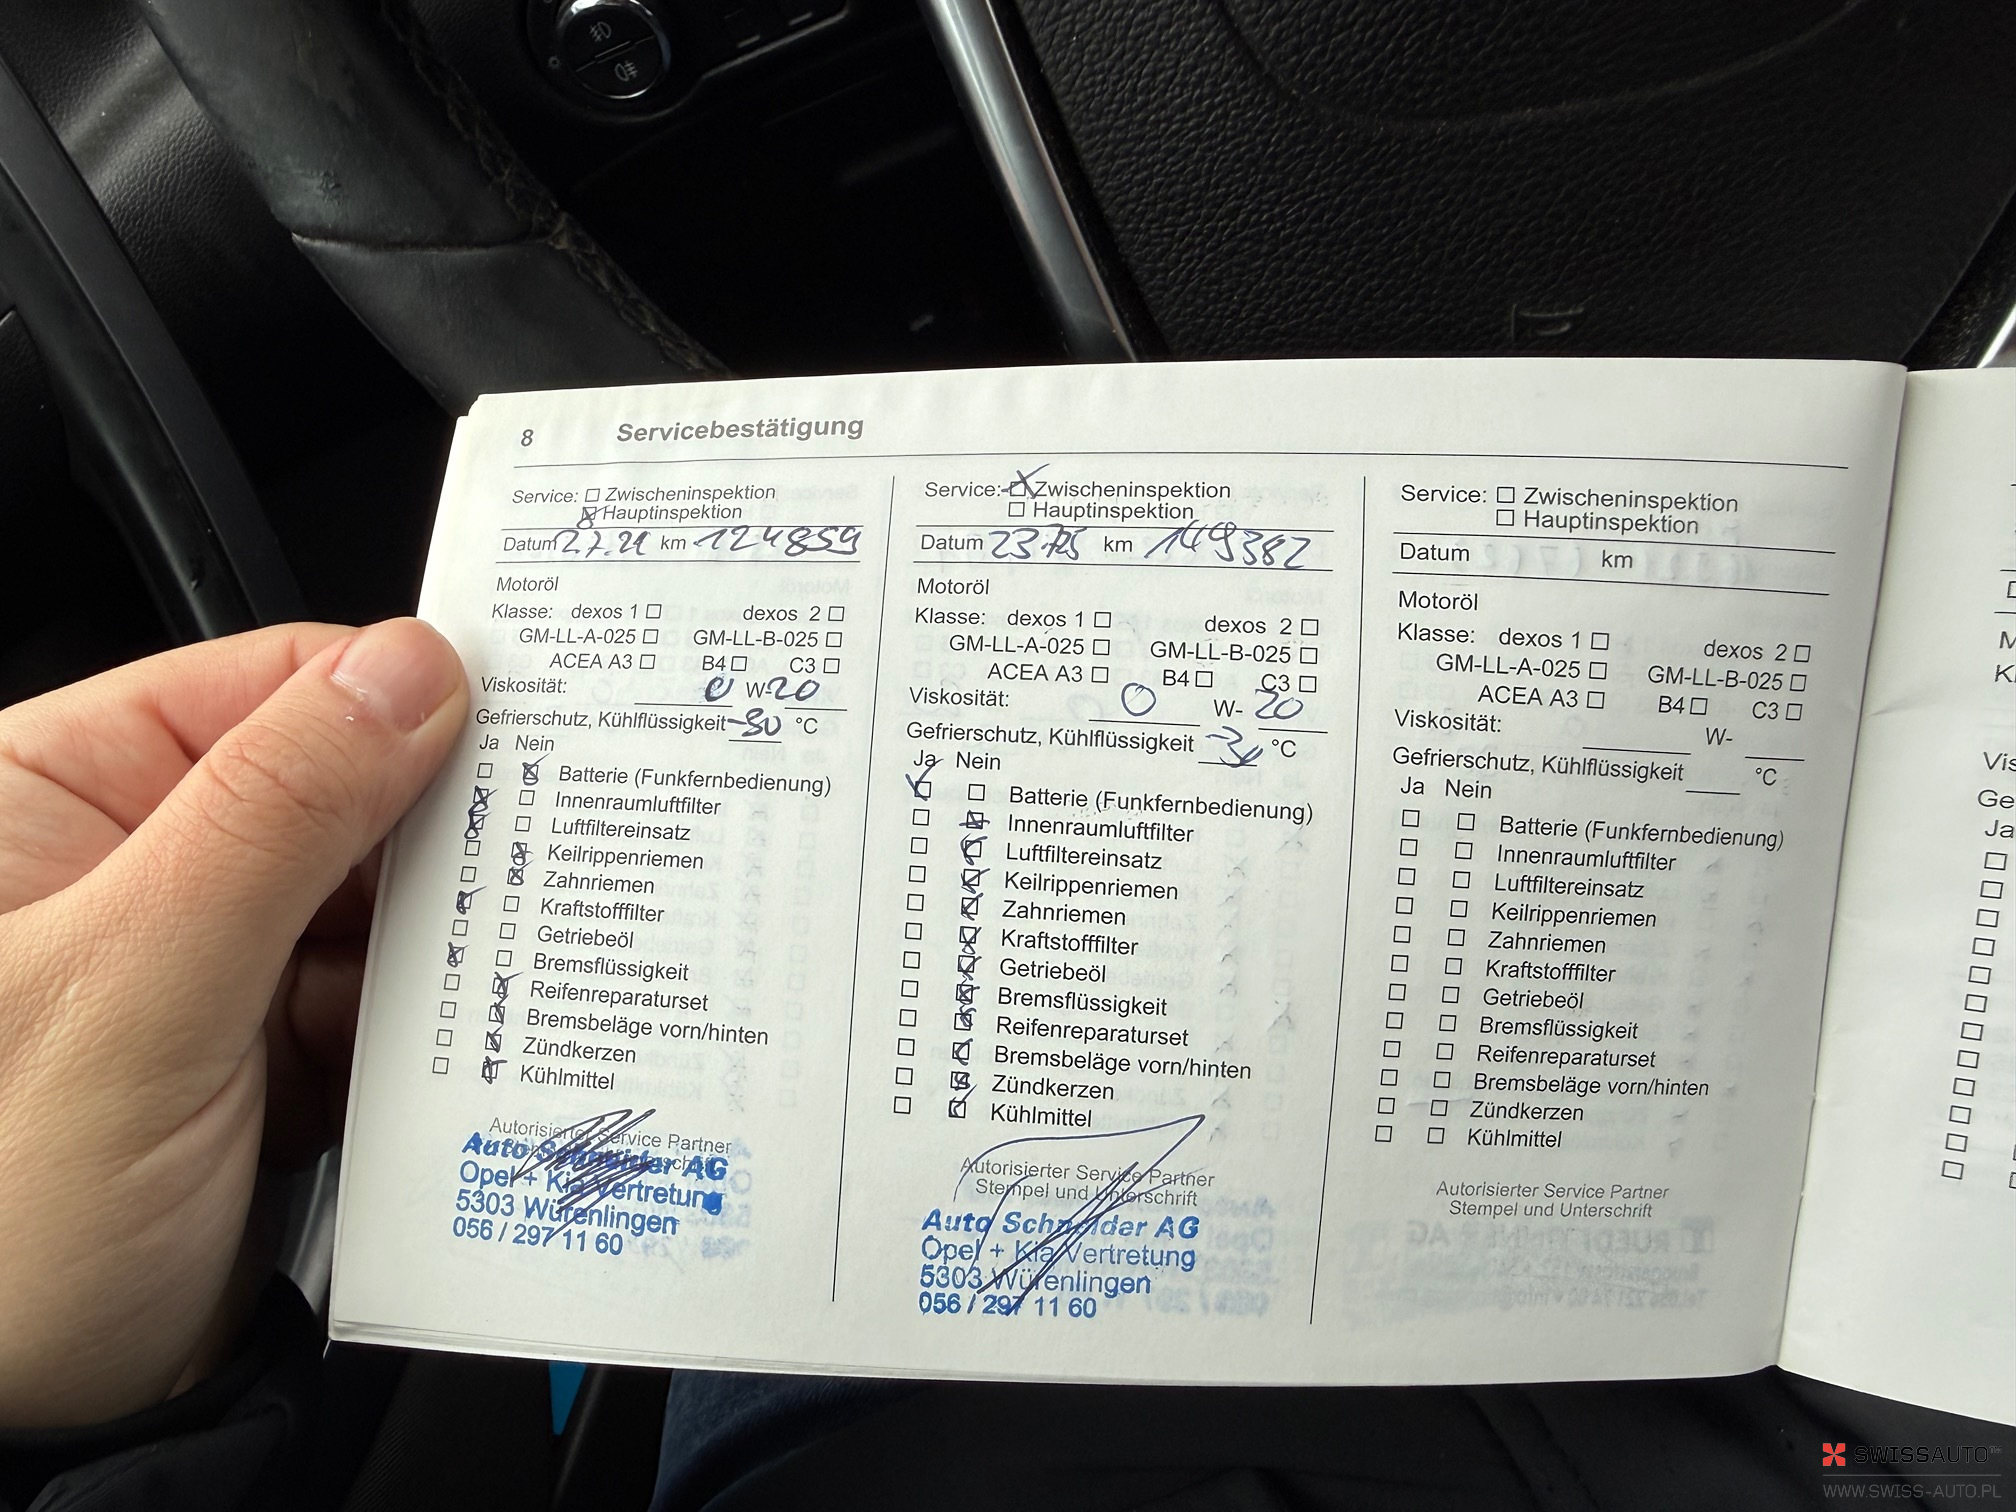 8 Servicebestätigung
Service: Zwischeninspektion
Hauptinspektion
Datum km 124859
Motoröl
Klasse: dexos 1 dexos 2
GM-LL-A-025 GM-LL-B-025
ACEA A3 B4 C3
Viskosität: 0 W-20
Gefrierschutz, Kühlflüssigkeit -30 °C
Ja Nein
Batterie (Funkfernbedienung)
Innenraumluftfilter
Luftfiltereinsatz
Keilrippenriemen
Zahnriemen
Kraftstofffilter
Getriebeöl
Bremsflüssigkeit
Reifenreparaturset
Bremsbeläge vorn/hinten
Zündkerzen
Kühlmittel
Autorisierter Service Partner
Auto Schneider AG
Opel + Kia Vertretung
5303 Würenlingen
056 / 297 11 60
Service: Zwischeninspektion
Hauptinspektion
Datum 23.7.25 km 149382
Motoröl
Klasse: dexos 1 dexos 2
GM-LL-A-025 GM-LL-B-025
ACEA A3 B4 C3
Viskosität: 0 W- 20
Gefrierschutz, Kühlflüssigkeit -30 °C
Ja Nein
Batterie (Funkfernbedienung)
Innenraumluftfilter
Luftfiltereinsatz
Keilrippenriemen
Zahnriemen
Kraftstofffilter
Getriebeöl
Bremsflüssigkeit
Reifenreparaturset
Bremsbeläge vorn/hinten
Zündkerzen
Kühlmittel
Autorisierter Service Partner
Stempel und Unterschrift
Auto Schneider AG
Opel + Kia Vertretung
5303 Würenlingen
056 / 297 11 60
Service: Zwischeninspektion
Hauptinspektion
Datum km
Motoröl
Klasse: dexos 1 dexos 2
GM-LL-A-025 GM-LL-B-025
ACEA A3 B4 C3
Viskosität: W-
Gefrierschutz, Kühlflüssigkeit °C
Ja Nein
Batterie (Funkfernbedienung)
Innenraumluftfilter
Luftfiltereinsatz
Keilrippenriemen
Zahnriemen
Kraftstofffilter
Getriebeöl
Bremsflüssigkeit
Reifenreparaturset
Bremsbeläge vorn/hinten
Zündkerzen
Kühlmittel
Autorisierter Service Partner
Stempel und Unterschrift
SWISSAUTO
WWW.SWISS-AUTO.PL